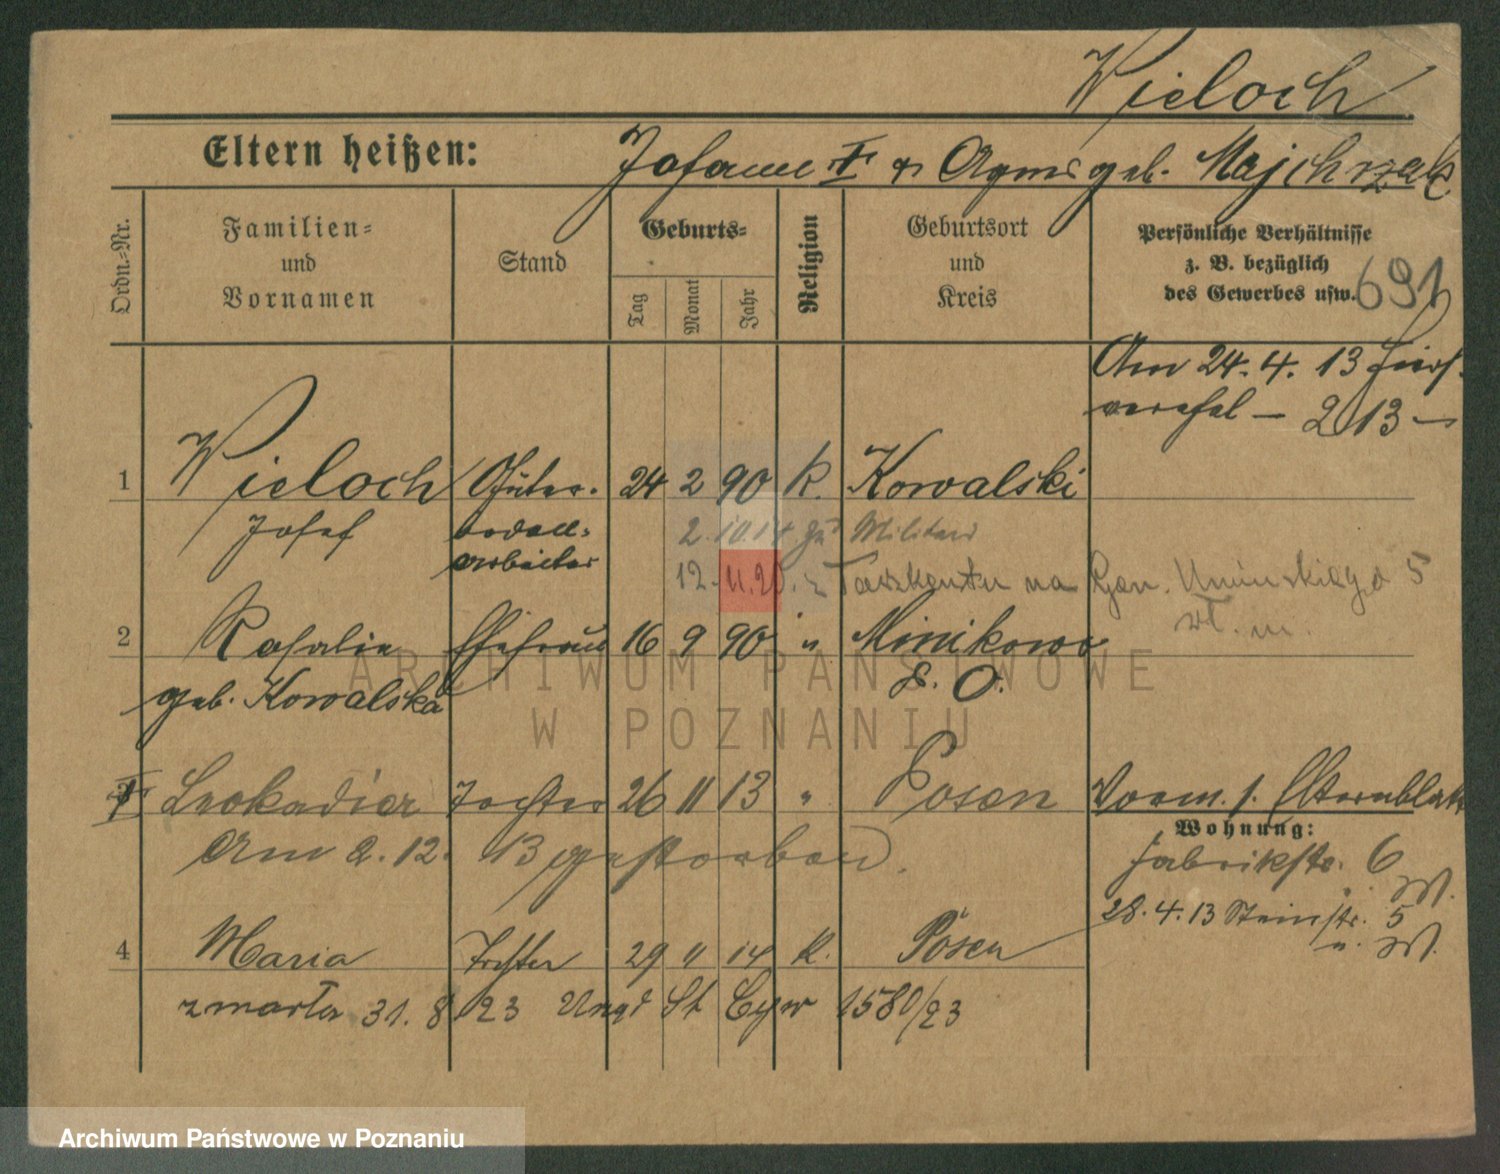 Wieloch
Eltern heißen: Johann † & Agnes geb. Majchrzak
Ordn.-Nr.
Familien-
und
Vornamen
Stand
Geburts-
Tag
Monat
Jahr
Religion
Geburtsort
und
Kreis
Persönliche Verhältnisse
z. B. bezüglich
des Gewerbes usw.
691
Am 24. 4. 13
213
1 Wieloch Güter- 24 2 90 K. Kowalski
Josef boden-
arbeiter
2. 10. 14 zu Militär
12. 11. 20. z Taszkentu na Gen. Umińskiego 5
wł. m.
2 Rosalie Ehefrau 16 9 90 " Minikowo
geb. Kowalska P. O.
3 † Leokadia Tochter 26 11 13 " Posen
Am 2. 12. 13 gestorben.
Vorm. s. Elternblatt
Wohnung:
Fabrikstr. 6
W.
28. 4. 13 Steinstr. 5
u. W.
4 Maria Tochter 29 " 14 K. Posen
zmarła 31. 8 23 Urząd St Cyw 1580/23
ARCHIWUM PAŃSTWOWE
W POZNANIU
Archiwum Państwowe w Poznaniu